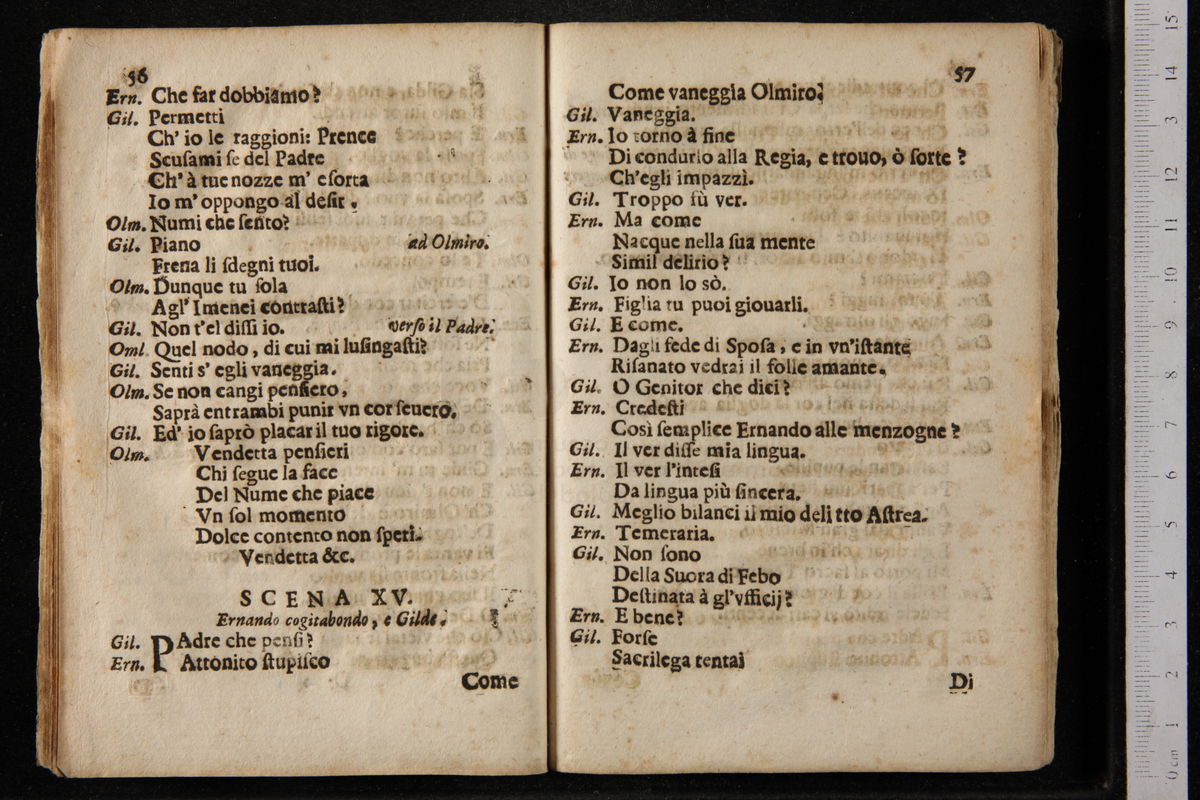 56
Ern. Che far dobbiamo?
Gil. Permetti
Ch' io le raggioni: Prence
Scuſami ſe del Padre
Ch' à tue nozze m' eſorta
Io m' oppongo al deſir.
Olm. Numi che ſento?
Gil. Piano ad Olmiro.
Frena li ſdegni tuoi.
Olm. Dunque tu ſola
Agl' Imenei contraſti?
Gil. Non t'el diſſi io. verſo il Padre.
Oml Quel nodo, di cui mi luſingaſti?
Gil. Senti s' egli vaneggia.
Olm. Se non cangi penſiero,
Saprà entrambi punir vn cor ſeuero.
Gil. Ed' io ſaprò placar il tuo rigore.
Olm. Vendetta penſieri
Chi ſegue la face
Del Nume che piace
Vn ſol momento
Dolce contento non ſperi.
Vendetta &c.
SCENA XV.
Ernando cogitabondo, e Gilde.
Gil. PAdre che penſi?
Ern. Attonito ſtupiſco
Come
57
Come vaneggia Olmiro?
Gil. Vaneggia.
Ern. Io torno à fine
Di condurlo alla Regia, e trouo, ò ſorte?
Ch'egli impazzì.
Gil. Troppo fù ver.
Ern. Ma come
Nacque nella ſua mente
Simil delirio?
Gil. Io non lo sò.
Ern. Figlia tu puoi giouarli.
Gil. E come.
Ern. Dagli fede di Spoſa, e in vn'iſtante
Riſanato vedrai il folle amante.
Gil. O Genitor che dici?
Ern. Credeſti
Così ſemplice Ernando alle menzogne?
Gil. Il ver diſſe mia lingua.
Ern. Il ver l'inteſi
Da lingua più ſincera.
Gil. Meglio bilanci il mio deli tto Aſtrea.
Ern. Temeraria.
Gil. Non ſono
Della Suora di Febo
Deſtinata à gl'vfficij?
Ern. E bene?
Gil. Forſe
Sacrilega tentai
Di
15
14
13
12
11
10
9
8
7
6
5
4
3
2
1
0 cm